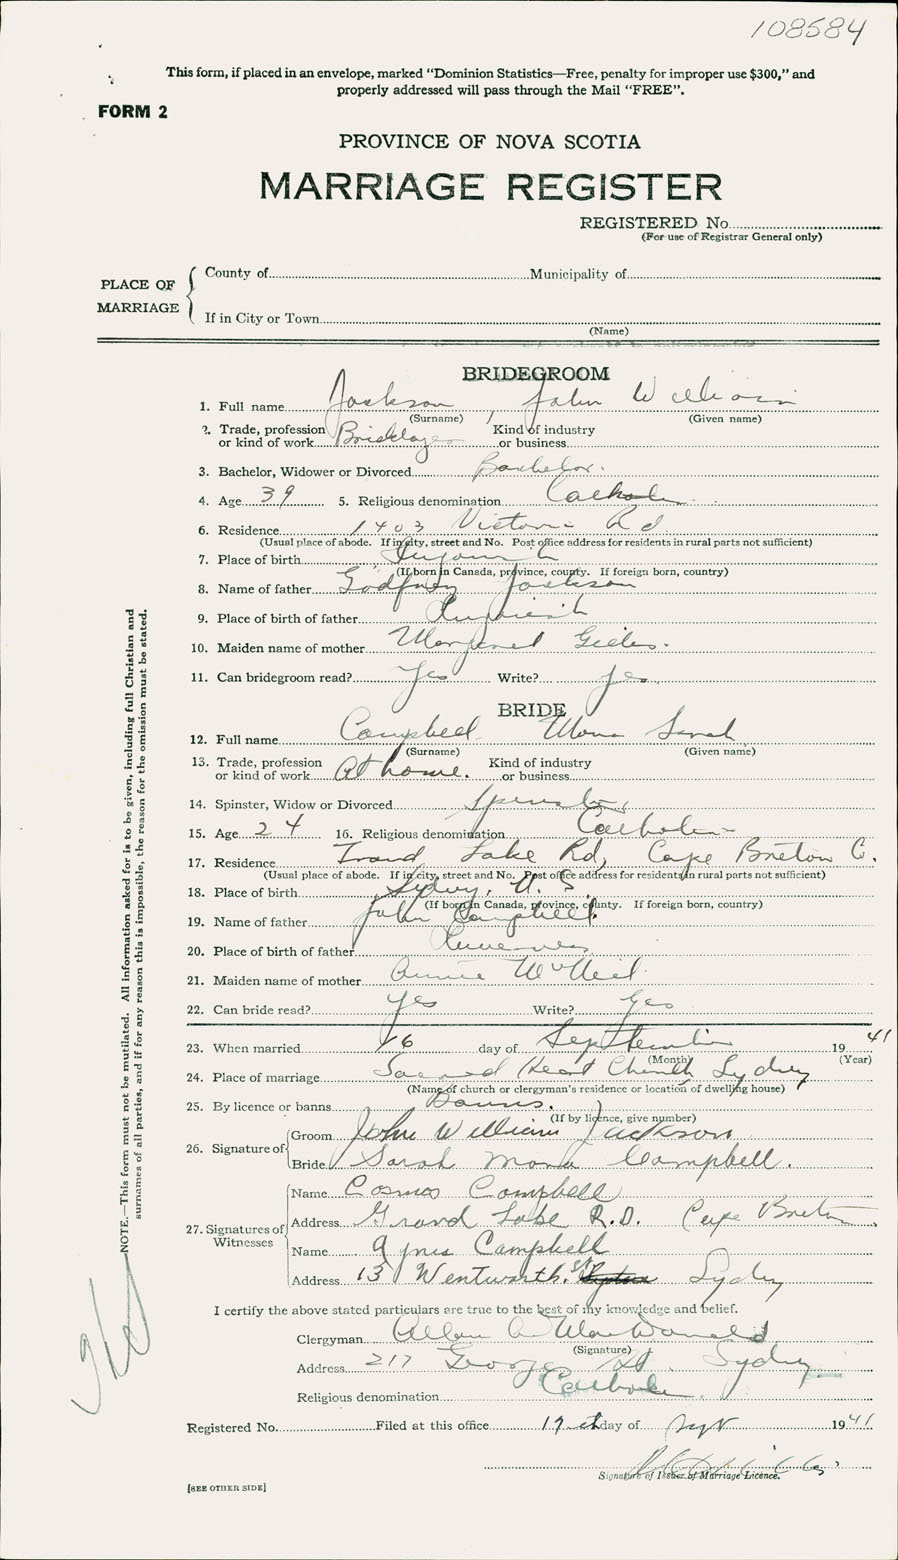 108584
This form, if placed in an envelope, marked “Dominion Statistics—Free, penalty for improper use $300,” and
properly addressed will pass through the Mail “FREE”.
FORM 2
PROVINCE OF NOVA SCOTIA
MARRIAGE REGISTER
REGISTERED No.
(For use of Registrar General only)
PLACE OF MARRIAGE
County of Municipality of
If in City or Town
(Name)
BRIDEGROOM
1. Full name Jackson, John William
(Surname) (Given name)
2. Trade, profession or kind of work Bricklayer Kind of industry or business
3. Bachelor, Widower or Divorced Bachelor.
4. Age 39 5. Religious denomination Catholic
6. Residence 1403 Victoria Rd
(Usual place of abode. If in city, street and No. Post office address for residents in rural parts not sufficient)
7. Place of birth
(If born in Canada, province, county. If foreign born, country)
8. Name of father Godfrey Jackson
9. Place of birth of father
10. Maiden name of mother Margaret Gillis.
11. Can bridegroom read? Yes Write? yes.
BRIDE
12. Full name Campbell Mona Sarah
(Surname) (Given name)
13. Trade, profession or kind of work At home. Kind of industry or business
14. Spinster, Widow or Divorced Spinster,
15. Age 24 16. Religious denomination Catholic
17. Residence Grand Lake Rd, Cape Breton C.
(Usual place of abode. If in city, street and No. Post office address for residents in rural parts not sufficient)
18. Place of birth Sydney, N.S.
(If born in Canada, province, county. If foreign born, country)
19. Name of father John Campbell.
20. Place of birth of father Inverness
21. Maiden name of mother Annie McNeil
22. Can bride read? Yes Write? Yes
23. When married 16 day of September 1941
(Month) (Year)
24. Place of marriage Sacred Heart Church Sydney
(Name of church or clergyman's residence or location of dwelling house)
25. By licence or banns Banns.
(If by licence, give number)
26. Signature of
Groom John William Jackson
Bride Sarah Mona Campbell.
27. Signatures of Witnesses
Name Cosmos Campbell
Address Grand Lake R.D. Cape Breton
Name Agnes Campbell
Address 13 Wentworth St Sydney
I certify the above stated particulars are true to the best of my knowledge and belief.
Clergyman Allan A MacDonald
(Signature)
Address 217 George St. Sydney
Religious denomination Catholic.
Registered No. Filed at this office 19th day of Sept 1941
Signature of Issuer of Marriage Licence.
[SEE OTHER SIDE]
NOTE.—This form must not be mutilated. All information asked for is to be given, including full Christian and
surnames of all parties, and if for any reason this is impossible, the reason for the omission must be stated.